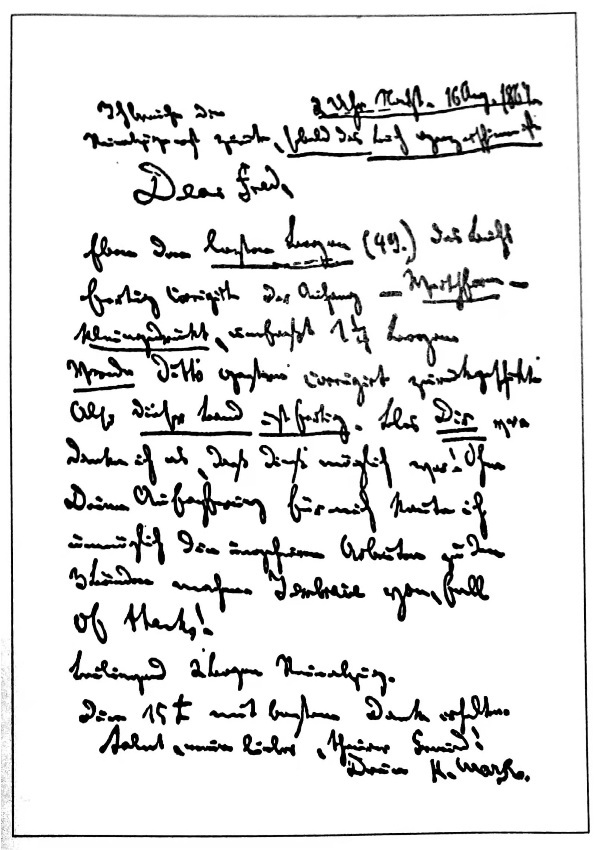 Ich brauche die 2 Uhr Nacht. 16 Aug. 1867.
zurück, sobald das Buch ganz erschienen ist
Dear Fred,
Eben den letzten Bogen (49.) des Buchs
fertig corrigirt. Der Anhang – Werthform –
kleingedruckt, umfaßt 1 1/4 Bogen.
Vorrede ditto gestern corrigirt zurückgeschickt.
Also dieser Band ist fertig. Blos Dir ver
danke ich es, daß dieß möglich war! Ohne
Deine Aufopferung für mich konnte ich
unmöglich die ungeheuren Arbeiten zu den
3 Bänden machen. I embrace you, full
of thanks!
Beiliegend 2 Bogen Reinabzug.
Die 15 £ mit bestem Dank erhalten.
Salut, mein lieber, theurer Freund!
Dein K. Marx.